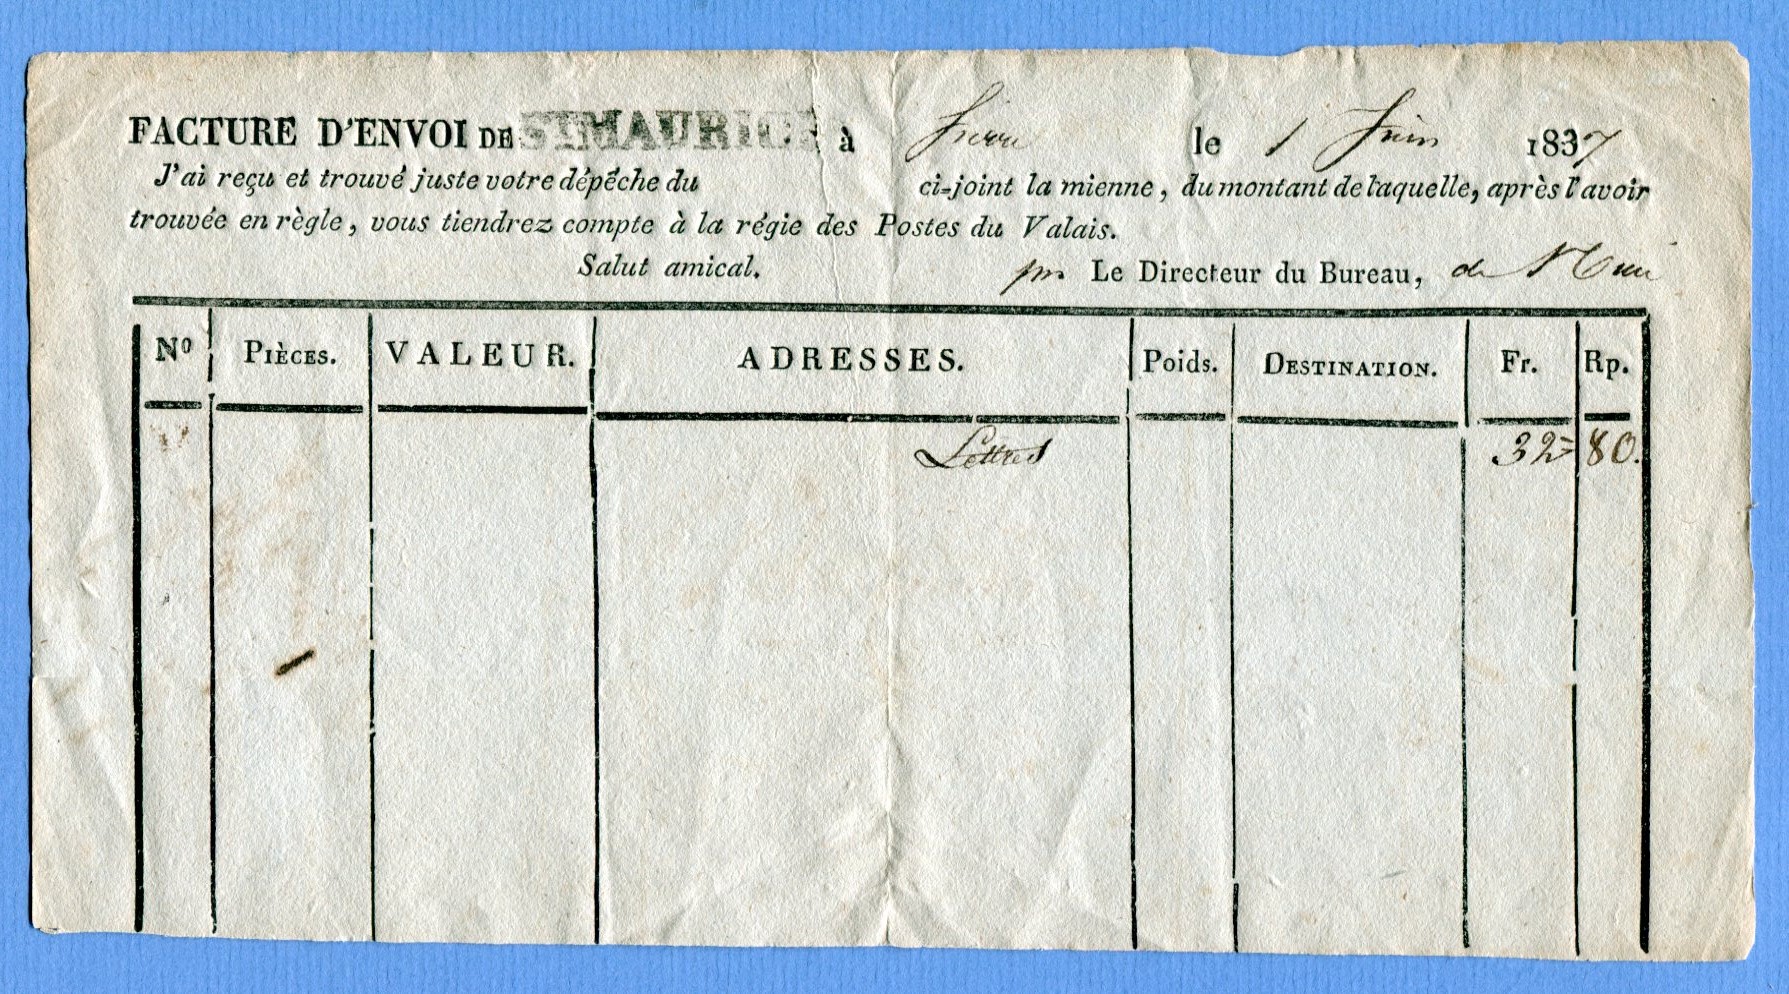 FACTURE D'ENVOI DE ST MAURICE à Sierre le 1 Juin 1837
J'ai reçu et trouvé juste votre dépêche du ci-joint la mienne, du montant de laquelle, après l'avoir
trouvée en règle, vous tiendrez compte à la régie des Postes du Valais.
Salut amical.
Le Directeur du Bureau, de
No PIÈCES. VALEUR. ADRESSES. Poids. DESTINATION. Fr. Rp.
Lettres 32 = 80.